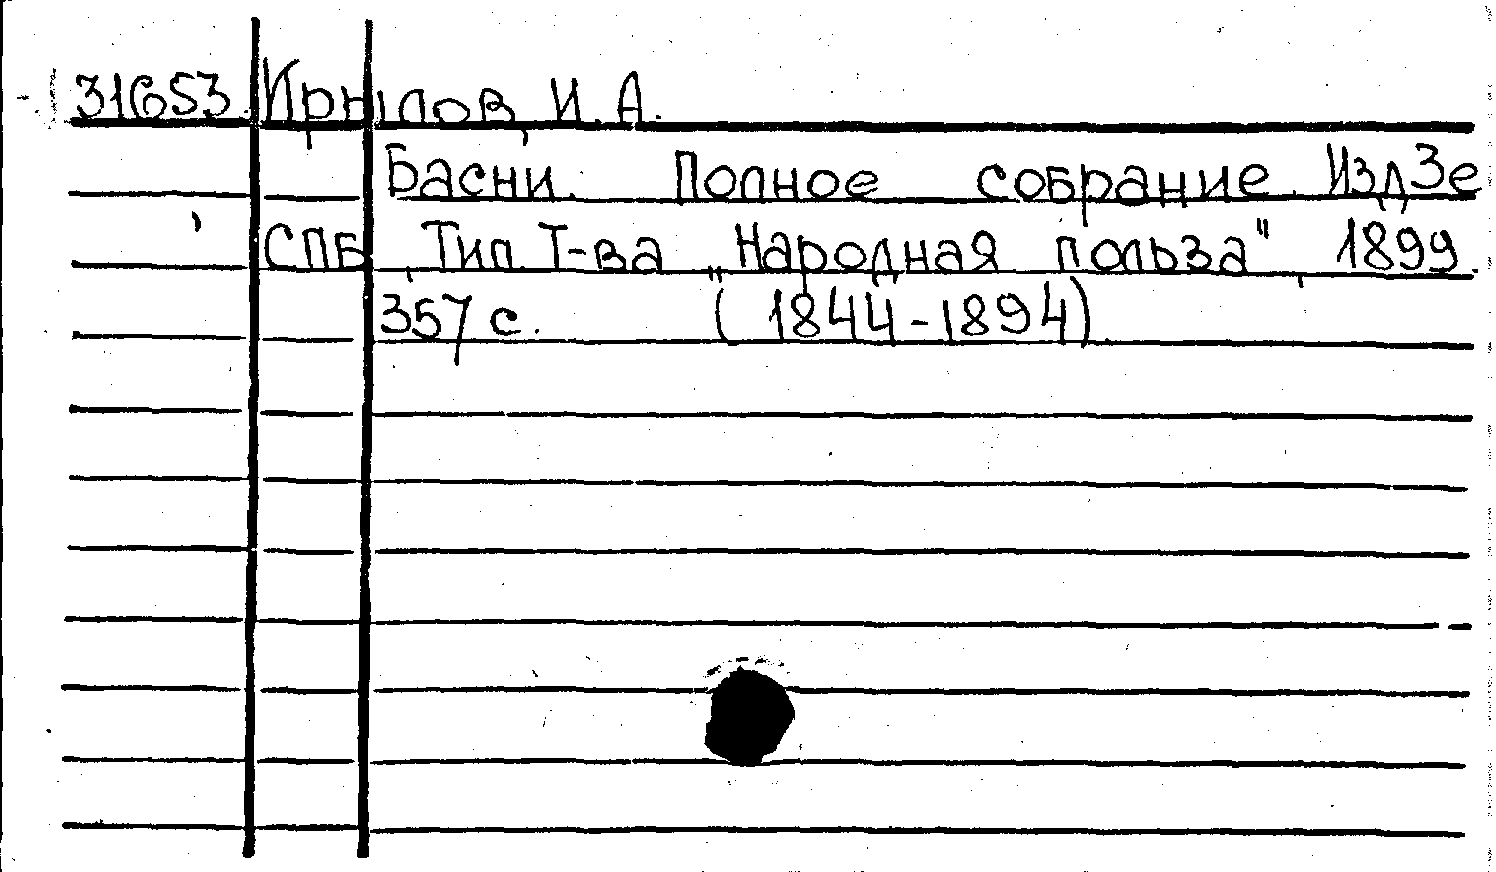 31653. Крылов, И. А.
Басни. Полное собрание. Изд 3е
СПБ, Тип. Т-ва „Народная польза", 1899.
357 с. (1844-1894).